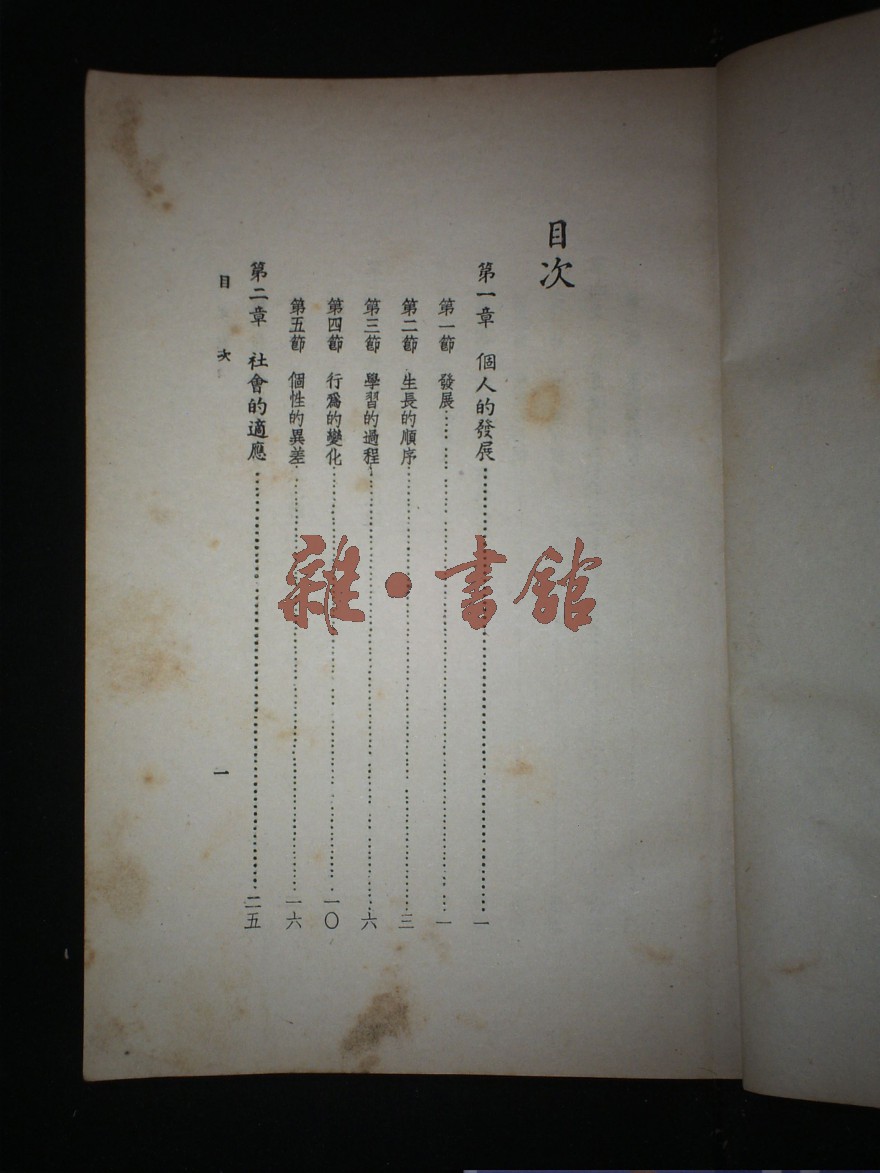 目次
第一章 個人的發展……一
第一節 發展……一
第二節 生長的順序……三
第三節 學習的過程……六
第四節 行爲的變化……一〇
第五節 個性的異差……一六
第二章 社會的適應……二五
目次 一
雜·書館